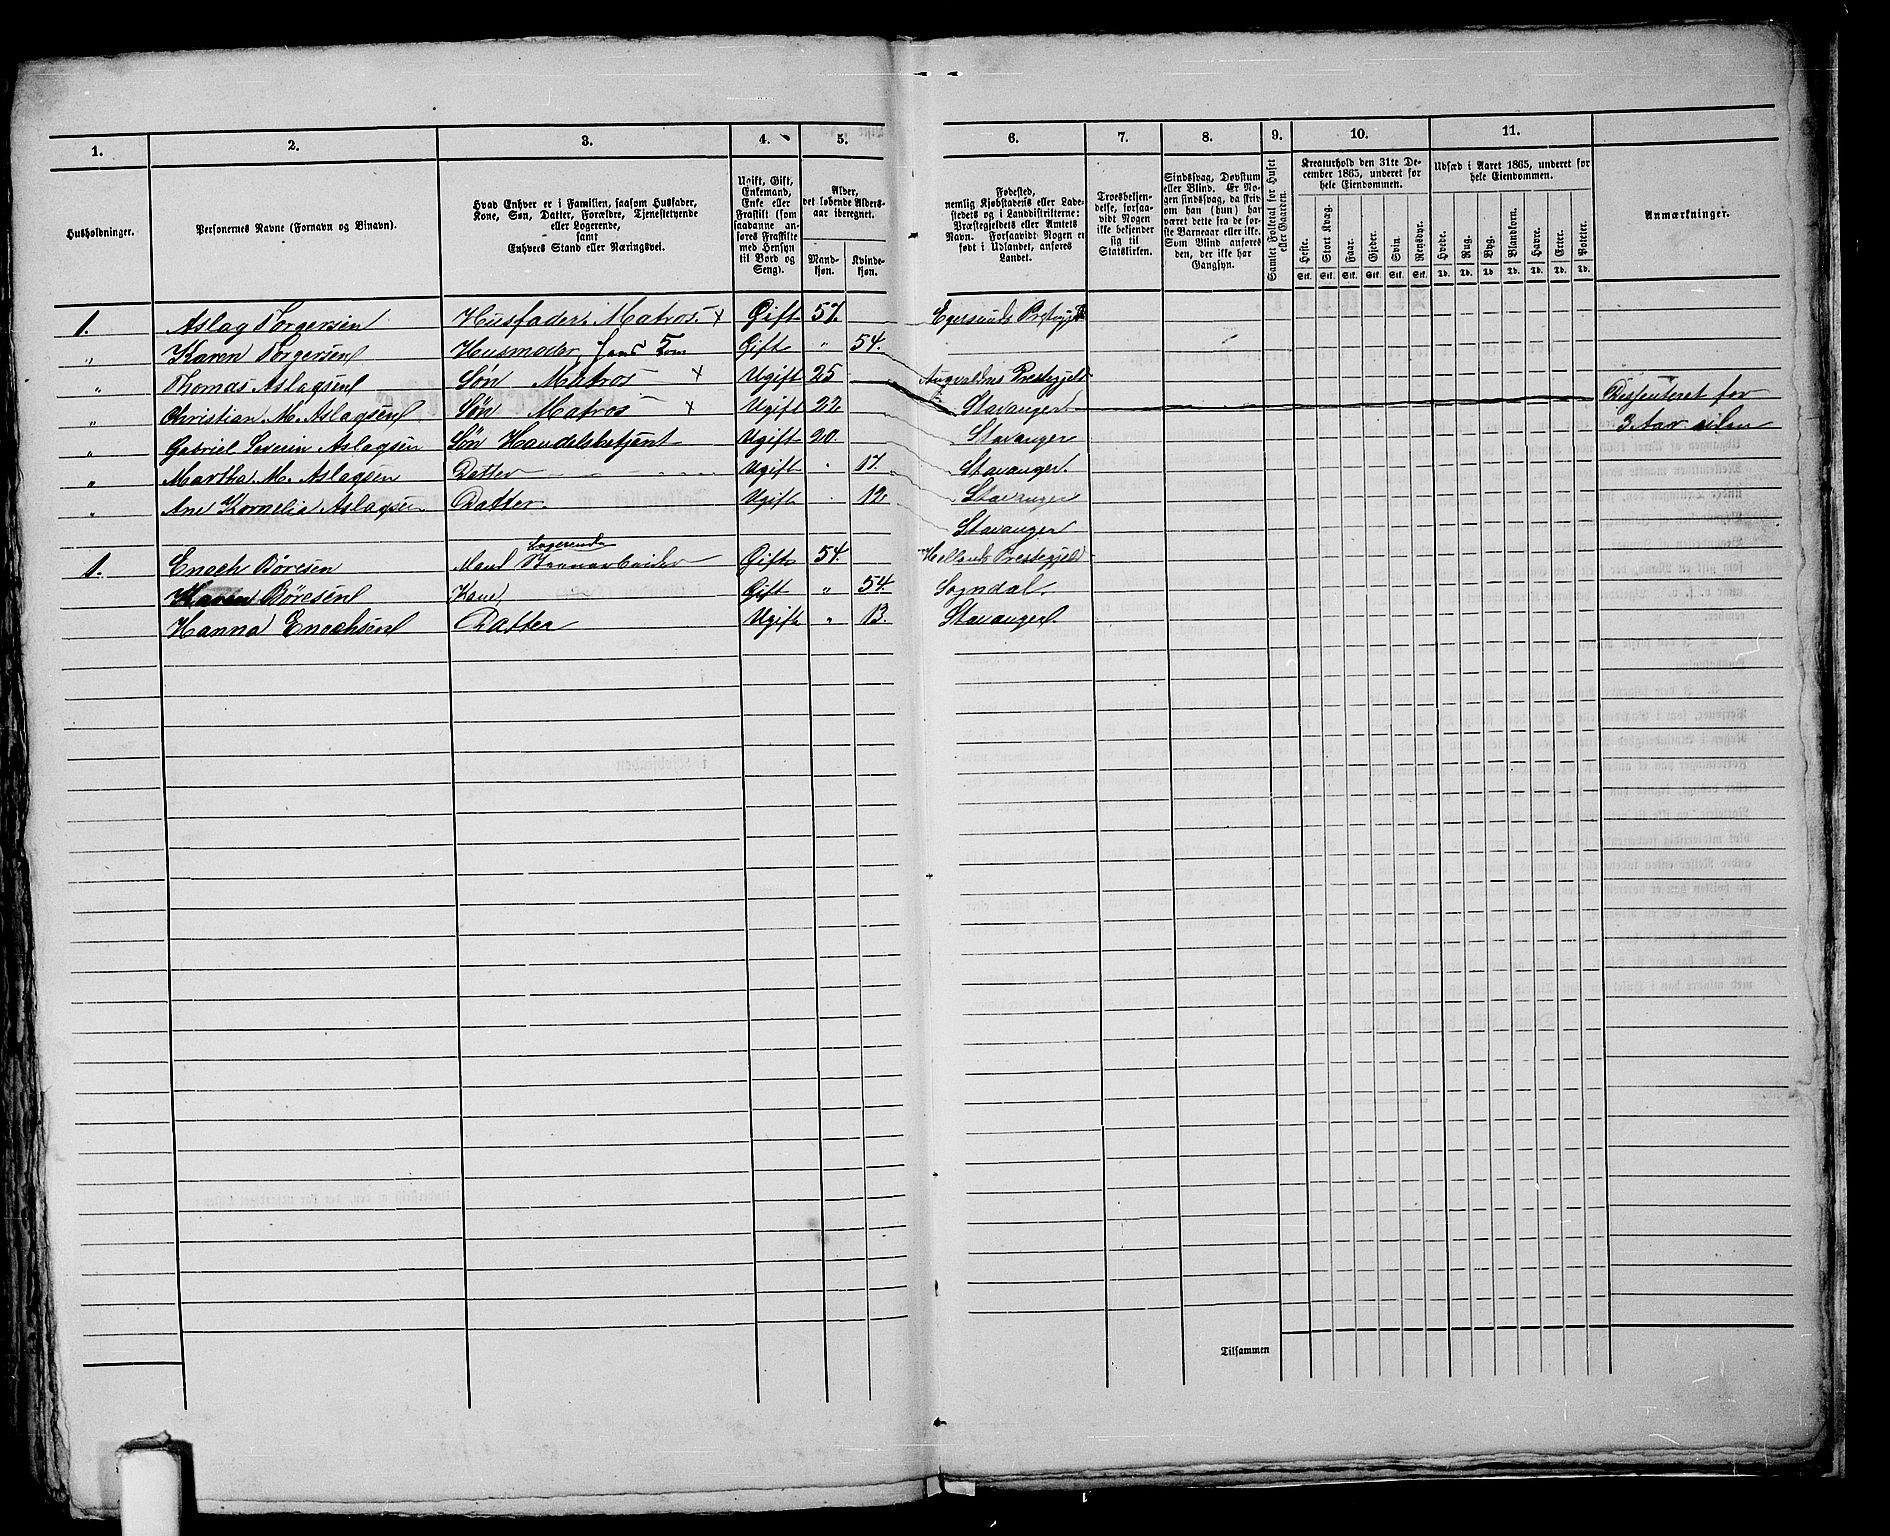 1. 2. 3. 4. 5. 6. 7. 8. 9. 10. 11.
Husholdninger.
Personernes Navne (Fornavn og Binavn).
Hvad Enhver er i Familien, saasom Husfader,
Kone, Søn, Datter, Forældre, Tjenestetyende
eller Logerende,
samt
Enhvers Stand eller Næringsvei.
Ugift, Gift,
Enkemand,
Enke eller
Fraskilt (som
saadanne an-
føres Fraskilte
med Hensyn
til Bord og
Seng).
Alder,
det løbende Alders-
aar iberegnet.
Mand-
kjøn.
Kvinde-
kjøn.
Fødested,
nemlig Kjøbstadens eller Lade-
stedets og i Landdistrikterne:
Præstegjeldets eller Amtets
Navn. Forsaavidt Nogen er
født i Udlandet, anføres
Landet.
Troesbekjen-
delse, forsaa-
vidt Nogen
ikke bekjender
sig til
Statskirken.
Sindssvag, Døvstum
eller Blind. Er No-
gen sindssvag, da skriv
om han (hun) har
været dette fra de før-
ste Barneaar eller ikke.
Som Blind anføres
den, der ikke har
Gangsyn.
Samlet Folketal for Huset
eller Gaarden.
Kreaturhold den 31te De-
cember 1865, underet for
hele Eiendommen.
Heste. Stort Kvæg. Faar. Gjeder. Svin. Rensdyr.
Stk. Stk. Stk. Stk. Stk. Stk.
Udsæd i Aaret 1865, underet for
hele Eiendommen.
Hvede. Rug. Byg. Blandkorn. Havre. Erter. Poteter.
Td. Td. Td. Td. Td. Td. Td.
Anmærkninger.
1. Aslag Torgersen Husfader. Matros. x Gift 57. Egersunds
" Karen Torgersen Husmoder, Gift " 54.
" Thomas Aslagsen Søn Matros x Ugift 25 Augvaldnes Prestegjeld
" Christian M. Aslagsen Søn Matros x Ugift 22 Stavanger for
" Gabriel Severin Aslagsen Søn Handelsbetjent Ugift 20. Stavanger 3 Aar siden
" Martha M. Aslagsen Datter Ugift " 17. Stavanger.
" Ane Kornelia Aslagsen Datter. Ugift " 12. Stavanger
Stavanger
Logerende
1. Enoch Børesen Mand Gift 54. Hellands Prestegjeld
Karen Børesen Kone Gift " 54. Sogndal.
Hanna Enochsen Datter Ugift " 13. Stavanger
Tilsammen